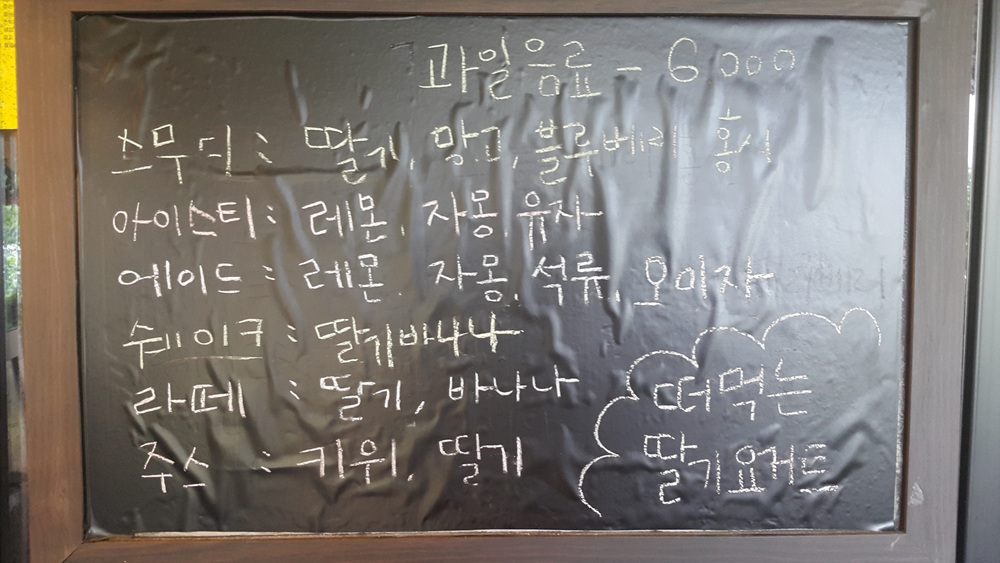 과일음료 - 6000
스무디 : 딸기, 망고, 블루베리 홍시
아이스티 : 레몬, 자몽, 유자
에이드 : 레몬. 자몽, 석류, 오미자
쉐이크 : 딸기바나나
라떼 : 딸기, 바나나
주스 : 키위, 딸기
떠먹는
딸기요거트